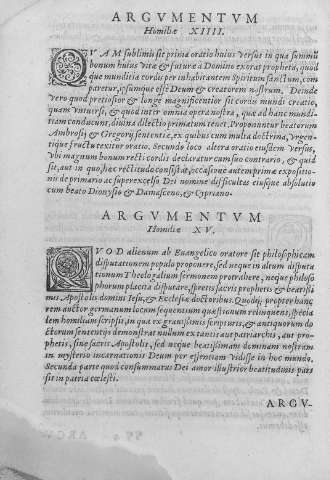 ARGVMENTVM
Homiliæ XIIII.
QVAM sublimis sit prima oratio huius versus in qua summũ
bonum huius vitæ & futuræ à Domino exorat propheta, quod
que munditia cordis per inhabitantem Spiritum sanctum, com
paretur, ipsumque esse Deum & creatorem nostrum. Deinde
vero quod pretiosior & longè magnificentior sit cordis mundi creatio,
quam vniuersi, & quod inter omnia opera nostra, quæ ad hanc mundi-
tiam conducunt, diuina dilectio primatum tenet. Proponuntur beatorum
Ambrosij & Gregorij sententiæ, ex quibus cum multa doctrina, vrgen-
tique fructu texitur oratio. Secundo loco altera oratio eiusdem versus,
vbi magnum bonum recti cordis declaratur cum suo contrario, & quid
sit, aut in quo, hæc rectitudo consistat, occasione autem primæ expositio-
nis de primario ac superexcelso Dei nomine difficultas eiusque absolutio
cum beato Dionysio & Damasceno, & Cypriano.
ARGVMENTVM
Homiliæ XV.
QVOD alienum ab Euangelico oratore sit philosophicam
disputationem populo proponere, sed neque in altum disputa
tionum Theologalium sermonem protrahere, neque philoso
phorum placita disputare, spretis sacris prophetis & beatissi
mis Apostolis domini Iesu, & Ecclesiæ doctoribus. Quodq; propter hanc
rem auctor germanum locum sequentium quæstionum relinquens, specia
lem homiliam scripsit, in qua ex grauissimis scripturis, & antiquorum do
ctorum sententijs demonstrat nullum ex tantis aut patriarchis, aut pro-
phetis, sine sacris Apostolis, sed neque beatissimam dominam nostram
in mysterio incarnationis Deum per essentiam vidisse in hoc mundo.
Secunda parte quod consummatus Dei amor illustrior beatitudinis pars
sit in patria cœlesti.
ARGV-